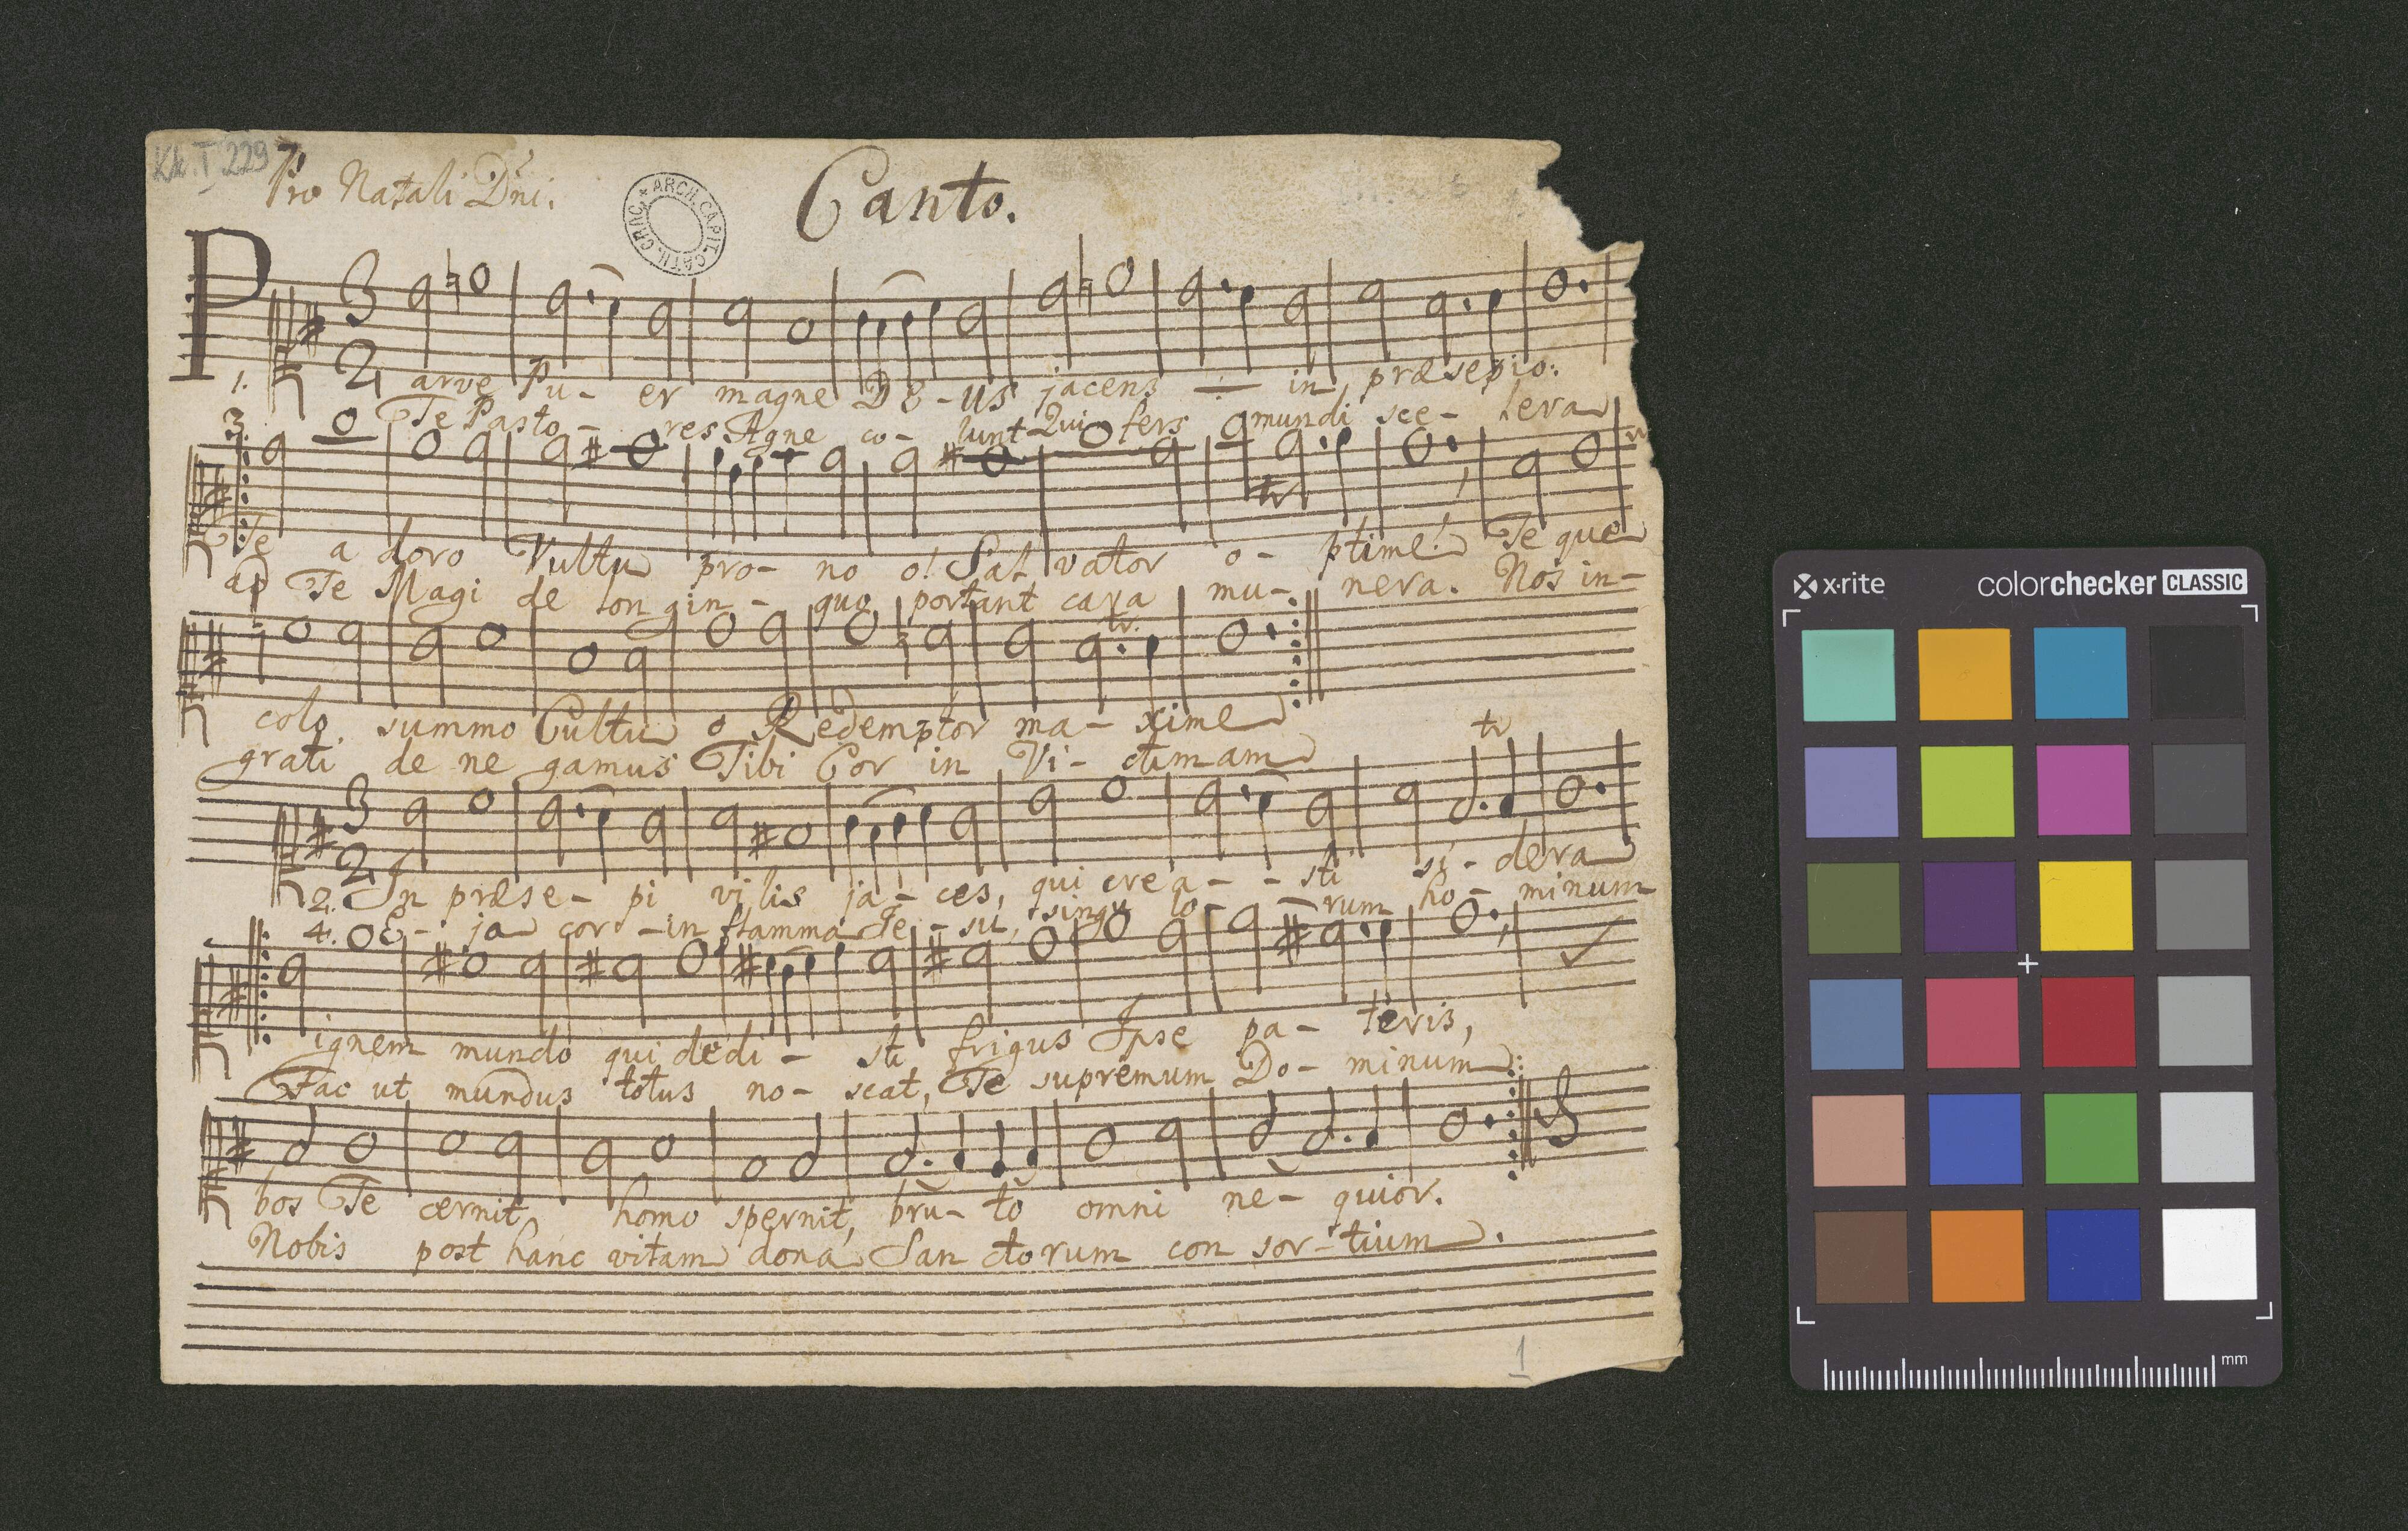 Kk. I 229
Pro Natali Dni.
Canto.
ARCH. CAPIT. CATH. CRAC.
3 2
1. Parve Pu- er magne DE-us jacens ÷ in præsepio.
3. Te Pasto- res Agne co- lunt Qui fers mundi sce- lera
tr
Te a doro Vultu pro- no o! Sal vator o- ptime! Te que
ad Te Magi de lon gin- quo portant cara mu- nera. Nos in-
tr.
colo summo Cultu o Redemptor ma- xime
grati de ne gamus Tibi Cor in Vi- ctimam
tr
3 2
2. In præse- pi vi lis ja- ces, qui cre a- - sti si- dera
4. E- ja cor -in flamma Je- su, singu lo- - rum ho- minum
ignem mundo qui dedi- sti frigus Ipse pa- teris,
Fac ut mundus totus no- scat, Te supremum Do- minum
bos Te cernit homo spernit, bru- to omni ne- quior.
Nobis post hanc vitam dona San ctorum con sor- tium.
1
x·rite colorchecker CLASSIC
mm